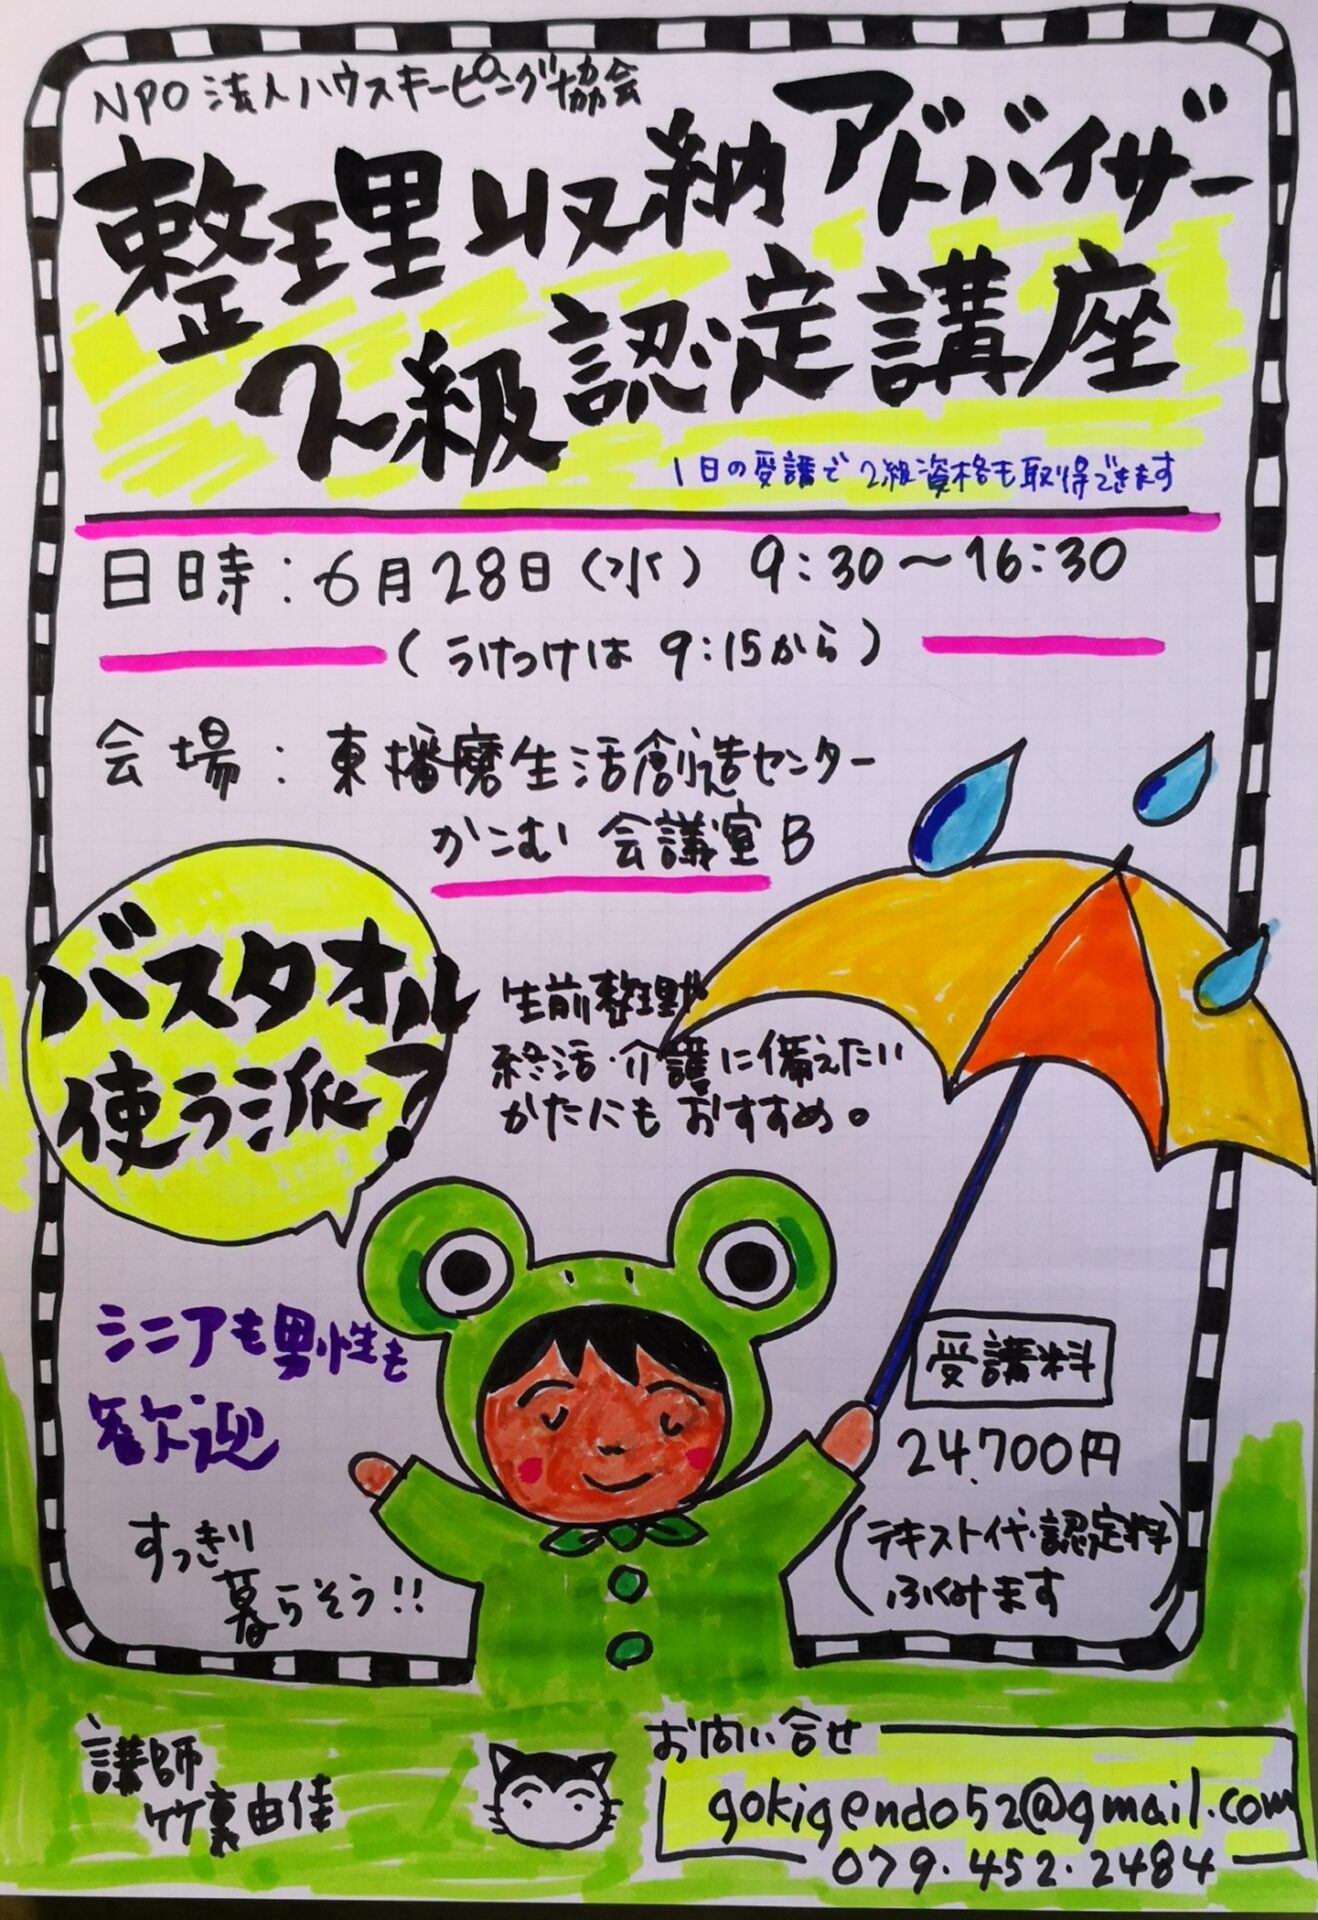 NPO法人ハウスキーピング協会
整理収納アドバイザー
2級認定講座
1日の受講で2級資格も取得できます
日時:6月28日(水) 9:30〜16:30
(うけつけは 9:15から)
会場:東播磨生活創造センター
かこむ 会議室B
バスタオル
使う派?
生前整理や
終活・介護に備えたい
かたにもおすすめ。
シニアも男性も
歓迎
すっきり
暮らそう!!
受講料
24,700円
(テキスト代・認定料
ふくみます)
講師
竹裏由佳
お問い合せ
gokigendo52@gmail.com
079.452.2484